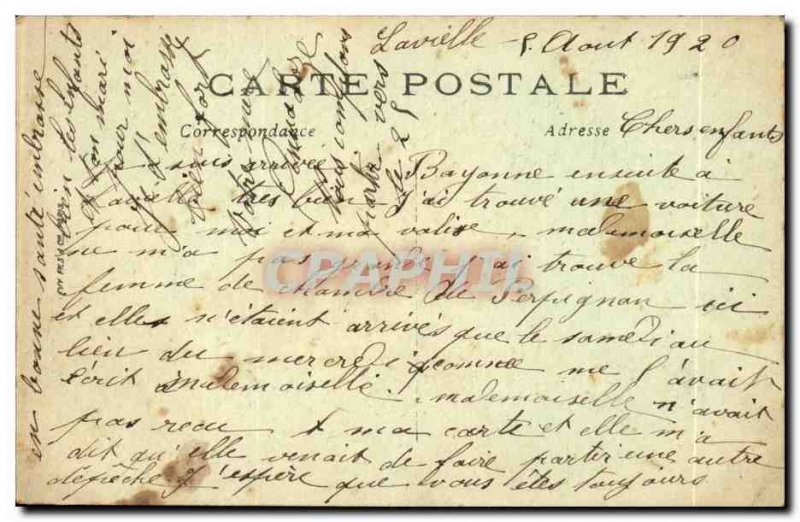 Lavielle 5 Aout 1920
CARTE POSTALE
Correspondance
Adresse
Chers enfants
suis arrivée Bayonne ensuite à
très bien j'ai trouvé une voiture
pour moi et ma valise, mademoiselle
ne m'a pas j'ai trouvé la
femme de chambre de Perpignan ici
et elles n'étaient arrivés que le samedi au
lieu du mercredi comme me l'avait
écrit mademoiselle. mademoiselle n'avait
pas recu ma carte et elle m'a
dit qu'elle venait de faire partir une autre
dépêche j'espère que vous êtes toujours
en bonne santé embrasse
bien tes enfants
ton mari
pour moi
Je t'embrasse
bien fort
Votre
nous comptons
partir vers
le 25
CPAPHIL